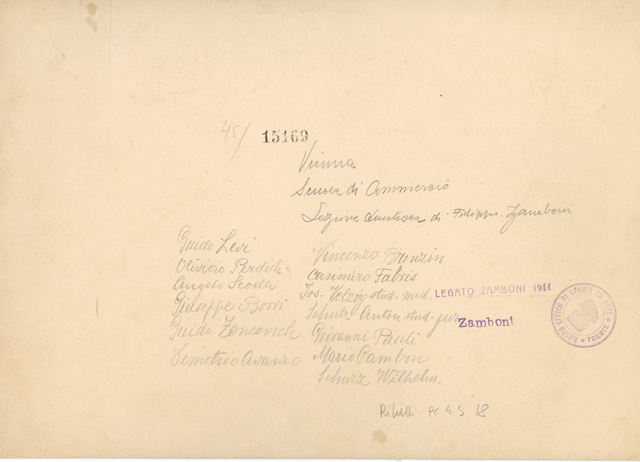 45/ 15169
Vienna
Scuola di Commercio
Lezione dantesca di Filippo Zamboni
Guido Levi
Oliviero
Angelo Scoda
Giuseppe Borri
Guido Zencovich
Demetrio Avanzo
Vincenzo Bronzin
Casimiro Fabris
Jos. stud. med.
Schulz Anton stud. jur.
Giovanni Pauli
Mario Pambon
Schurz Wilhelm.
LEGATO ZAMBONI 1911
Zamboni
MUSEO CIVICO DI STORIA ED ARTE
TRIESTE
18